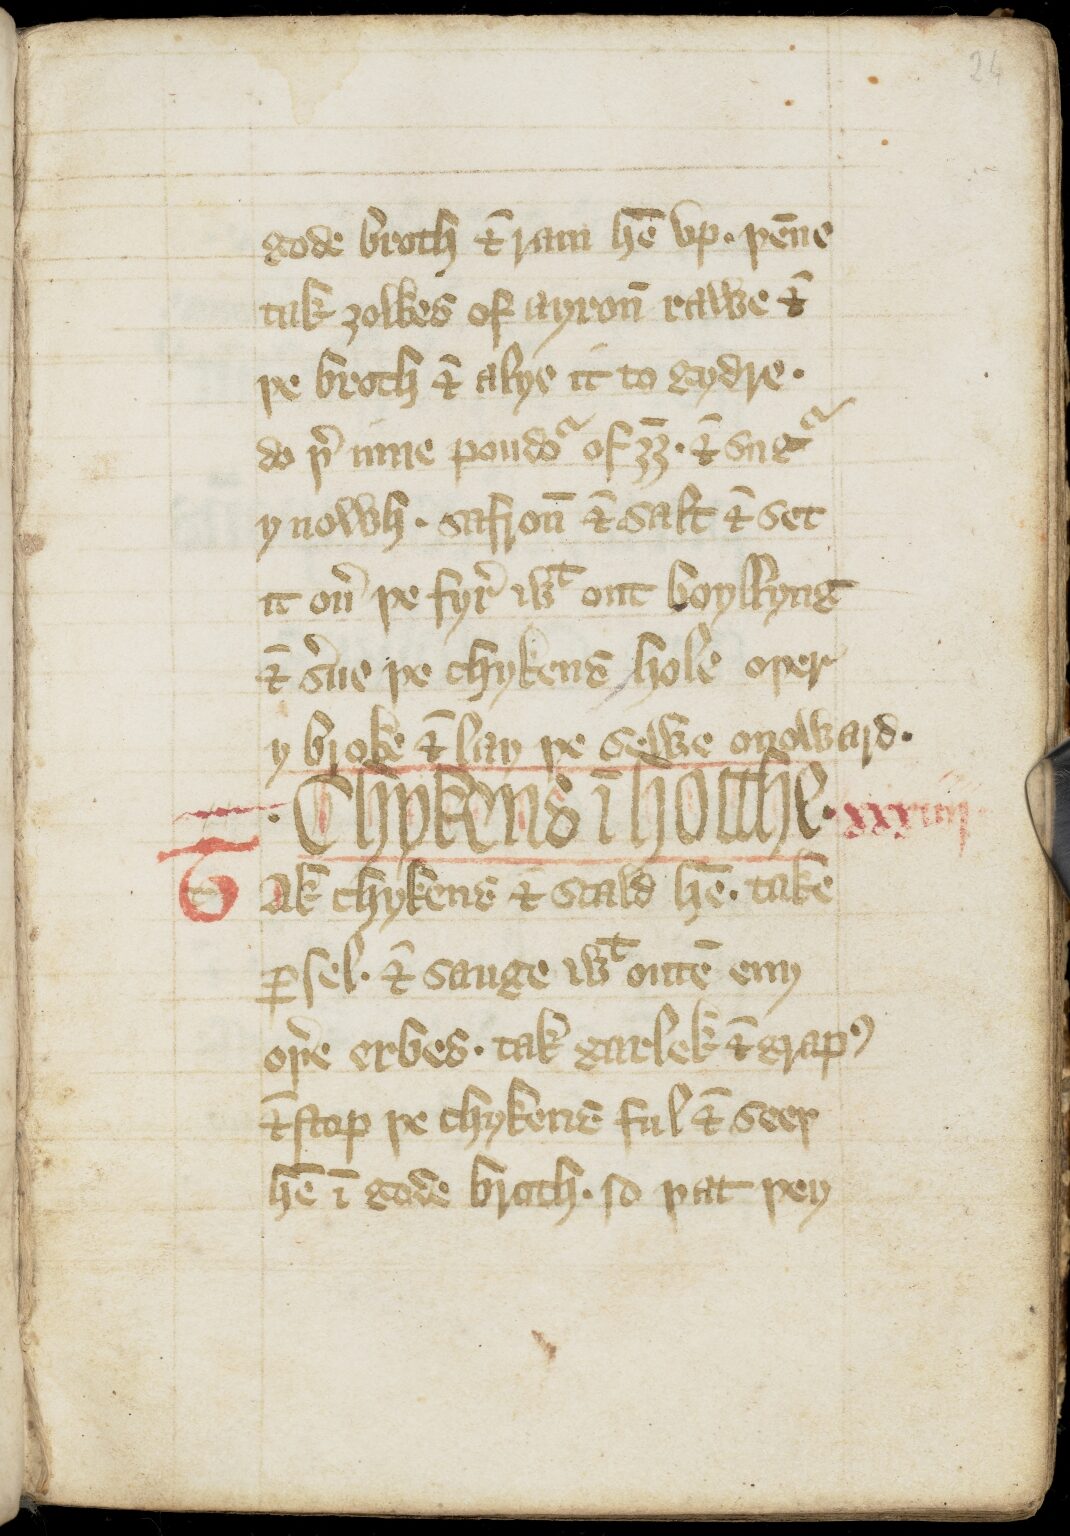 24
gode broth & ram hē vp. þēne
tak ȝolkes of ayron̄ rawe &
þe broth & alye it to gydre.
do þ͛ inne poudoᷓ of ȝȝ̄. & sugᷓ
y nowh. safron̄ & salt & set
it ou͛ þe fyr͛ wᵗ out boyllyng
& s͛ue þe chykens hole oþer
y broke & lay þe sewe onoward.
.Chykens ī hocche. xxxiiij
TAk chykens & scald hē. take
ꝑsel. & sauge wᵗ outē eny
oþ͛e erbes. tak garlek & grapꝰ
& stop þe chykens ful & seeþ
hē ī gode broth. so þat þey